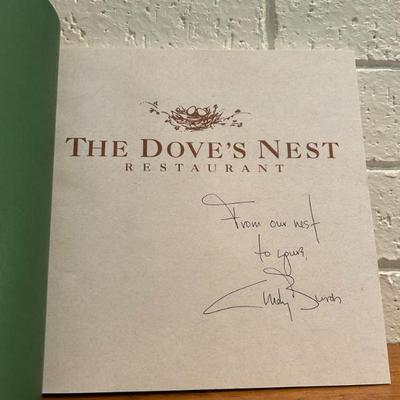 THE DOVE'S NEST
RESTAURANT
From our nest
to yours,
Cindy Burch